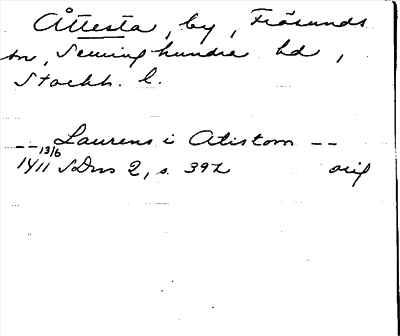 Åttesta, by, Frösunds
sn, Seminghundra hd,
Stockh. l.
-- Laurens i Atistom --
13/6
1411 SDns 2, s. 392 orig